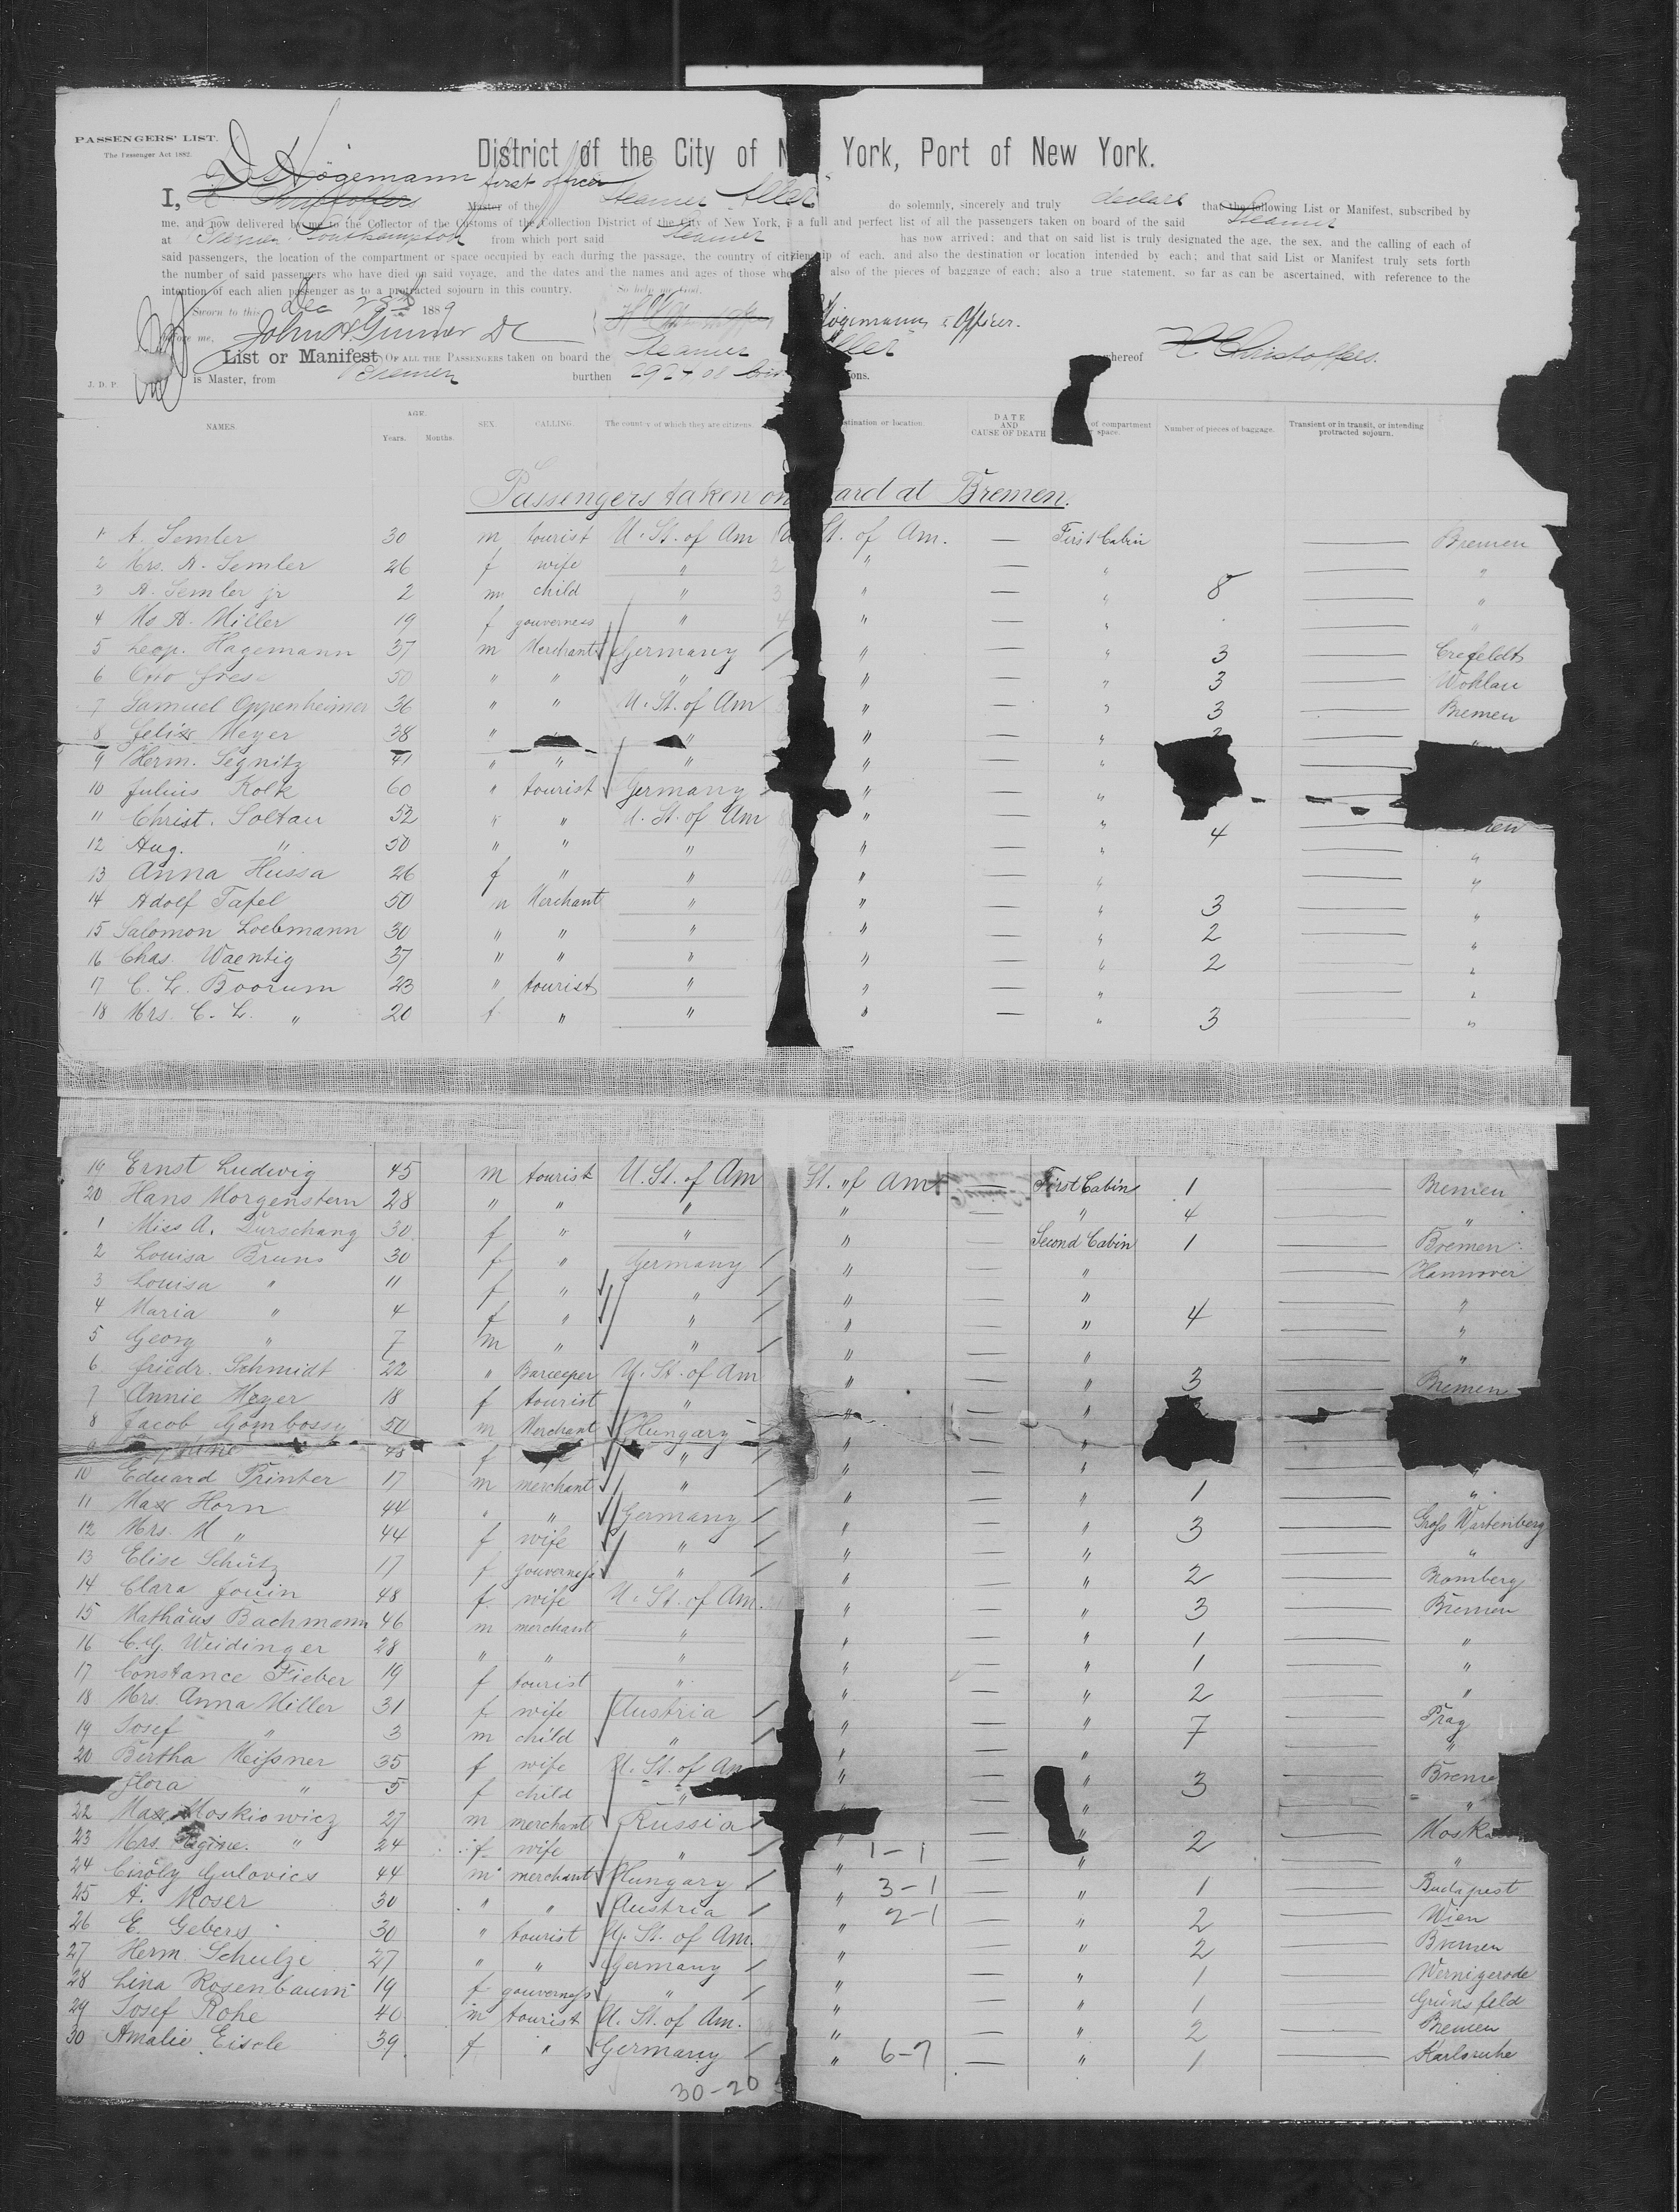 PASSENGERS' LIST.
The Passenger Act 1882.
District of the City of N York, Port of New York.
D. Högemann first officer
I, H Christoffers Master of the Steamer Aller do solemnly, sincerely and truly declare that the following List or Manifest, subscribed by
me, and now delivered by me to the Collector of the Customs of the Collection District of the City of New York, is a full and perfect list of all the passengers taken on board of the said Steamer
at Bremen Southampton from which port said Steamer has now arrived; and that on said list is truly designated the age, the sex, and the calling of each of
said passengers, the location of the compartment or space occupied by each during the passage, the country of citizenship of each, and also the destination or location intended by each; and that said List or Manifest truly sets forth
the number of said passengers who have died on said voyage, and the dates and the names and ages of those who also of the pieces of baggage of each; also a true statement, so far as can be ascertained, with reference to the
intention of each alien passenger as to a protracted sojourn in this country. So help me God.
Sworn to this Dec 28th 1889 Högemann Officer.
before me, John H Gunner DC
List or Manifest OF ALL THE PASSENGERS taken on board the Steamer Aller whereof H Christoffers.
J. D. P. is Master, from Bremen burthen 2924 08 tons.
NAMES. AGE. Years. Months. SEX. CALLING. The country of which they are citizens. stination or location. DATE AND CAUSE OF DEATH of compartment r space. Number of pieces of baggage. Transient or in transit, or intending protracted sojourn.
Passengers taken on ard at Bremen.
1 A. Semler 30 m tourist U. St. of Am St. of Am. — First Cabin — Bremen
2 Mrs. A. Semler 26 f wife " " — " — "
3 A. Semler jr 2 m child " " — " 8 — "
4 Ms A. Miller 19 f gouverness " " — " — "
5 Leop. Hagemann 37 m Merchant Germany " — " 3 — Crefeldt
6 Otto Grese 50 " " " " — " 3 — Wohlau
7 Samuel Oppenheimer 36 " " U. St. of Am " — " 3 — Bremen
8 Felix Meyer 38 " " " — " "
9 Herm. Segnitz 41 " " " " — "
10 Julius Kolk 60 " tourist Germany " — "
11 Christ. Soltau 52 " " U. St. of Am " — " 4 — en
12 Aug. " 50 " " " " — " — "
13 Anna Hussa 26 f " " " — " — "
14 Adolf Tafel 50 m Merchant " " — " 3 — "
15 Salomon Loebmann 30 " " " " — " 2 — "
16 Chas. Waentig 37 " " " " — " 2 — "
17 C. L. Boorum 23 " tourist " " — " — "
18 Mrs. C. L. " 20 f " " " — " 3 — "
19 Ernst Ludwig 45 m tourist U. St. of Am St. of Am — First Cabin 1 — Bremen
20 Hans Morgenstern 28 " " " " — " 4 — "
1 Miss A. Durschang 30 f " " " — Second Cabin 1 — Bremen
2 Louisa Bruns 30 f " Germany " — " — Hannover
3 Louisa " 11 f " " " — " — "
4 Maria " 4 f " " " — " 4 — "
5 Georg " 7 m " " " — " — "
6 Friedr. Schmidt 22 " Barceeper U. St. of Am " — " 3 — Bremen
7 Annie Meyer 18 f tourist " " — "
8 Jacob Gombossy 50 m Merchant Hungary " — "
9 45 f " " — "
10 Eduard Printer 17 m merchant " " — " 1 — "
11 Max Horn 44 " " Germany " — " 3 — Gross Wartenberg
12 Mrs. M " 44 f wife " " — " — "
13 Elise Schütz 17 f gouverness " " — " 2 — Bromberg
14 Clara Jouin 48 f wife U. St. of Am. " — " 3 — Bremen
15 Mathäus Bachmann 46 m merchant " " — " 1 — "
16 C. G. Weidinger 28 " " " " — " 1 — "
17 Constance Fieber 19 f tourist " " — " 2 — "
18 Mrs. Anna Miller 31 f wife Austria " — " 7 — Prag
19 Josef " 3 m child " " — " — "
20 Bertha Meissner 35 f wife U. St. of Am " — " 3 — Breme
Flora " 5 f child " — " — "
22 Max Moskiowicz 27 m merchant Russia " — " 2 — Moska
23 Mrs. Regine. " 24 f wife " " 1-1 — " — "
24 Ciroly Gulovics 44 m merchant Hungary " 3-1 — " 1 — Budapest
25 A. Moser 30 " " Austria " 2-1 — " 2 — Wien
26 E. Gebers 30 " tourist U. St. of Am. " — " 2 — Bremen
27 Herm. Schulze 27 " " Germany " — " 1 — Wernigerode
28 Lina Rosenbaum 19 f gouverness " " — " 1 — Grünsfeld
29 Josef Rohe 40 m tourist U. St. of Am. " — " 2 — Bremen
30 Amalie Eisele 39 f " Germany " 6-7 — " 1 — Karlsruhe
30-20